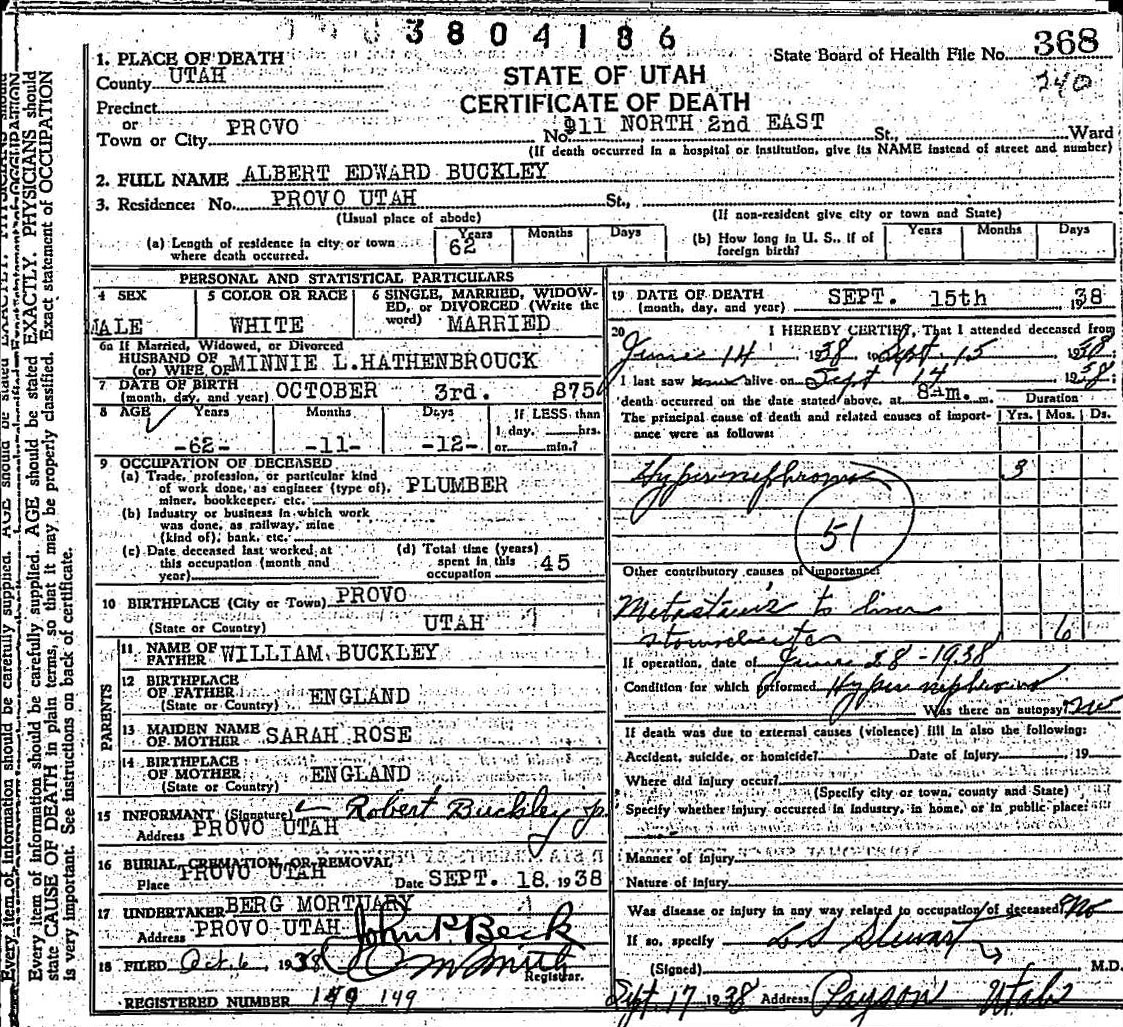 3804186
State Board of Health File No. 368
240
1. PLACE OF DEATH
County UTAH
STATE OF UTAH
CERTIFICATE OF DEATH
Precinct
or
Town or City PROVO No. 911 NORTH 2nd EAST St., Ward
(If death occurred in a hospital or institution, give its NAME instead of street and number)
2. FULL NAME ALBERT EDWARD BUCKLEY
3. Residence: No. PROVO UTAH St.,
(Usual place of abode) (If non-resident give city or town and State)
(a) Length of residence in city or town where death occurred. Years 62 Months Days
(b) How long in U. S., if of foreign birth? Years Months Days
PERSONAL AND STATISTICAL PARTICULARS
4 SEX MALE
5 COLOR OR RACE WHITE
6 SINGLE, MARRIED, WIDOW-
ED, or DIVORCED (Write the
word) MARRIED
6a If Married, Widowed, or Divorced
HUSBAND OF
(or) WIFE OF MINNIE L.HATHENBROUCK
7 DATE OF BIRTH
(month, day, and year) OCTOBER 3rd. 875
8 AGE Years Months Days If LESS than
1 day, hrs.
-62- -11- -12- or min.?
9 OCCUPATION OF DECEASED
(a) Trade, profession, or particular kind
of work done, as engineer (type of),
miner, bookkeeper, etc. PLUMBER
(b) Industry or business in which work
was done, as railway, mine
(kind of), bank, etc.
(c) Date deceased last worked at
this occupation (month and
year)
(d) Total time (years)
spent in this
occupation 45
10 BIRTHPLACE (City or Town) PROVO
(State or Country) UTAH
PARENTS
11 NAME OF
FATHER WILLIAM BUCKLEY
12 BIRTHPLACE
OF FATHER
(State or Country) ENGLAND
13 MAIDEN NAME
OF MOTHER SARAH ROSE
14 BIRTHPLACE
OF MOTHER
(State or Country) ENGLAND
15 INFORMANT (Signature) Robert Buckley Jr.
Address PROVO UTAH
16 BURIAL, CREMATION, OR REMOVAL
Place PROVO UTAH Date SEPT. 18, 1938
17 UNDERTAKER BERG MORTUARY
Address PROVO UTAH John P. Beck
18 FILED Oct. 6, 1938 Smith
Registrar.
REGISTERED NUMBER 149 149
19 DATE OF DEATH
(month, day, and year) SEPT. 15th 1938
20 I HEREBY CERTIFY, That I attended deceased from
June 14 1938, to Sept. 15, 1938
I last saw alive on Sept 14 1938
death occurred on the date stated above, at 8 AM. m. Duration
The principal cause of death and related causes of import-
ance were as follows: Yrs. Mos. Ds.
Hypernephroma 3
51
Other contributory causes of importance:
Metastasis to liver
6
If operation, date of June 28-1938
Condition for which performed Hypernephroma
Was there an autopsy? no
If death was due to external causes (violence) fill in also the following:
Accident, suicide, or homicide? Date of injury 19
Where did injury occur?
(Specify city or town, county and State)
Specify whether injury occurred in industry, in home, or in public place:
Manner of Injury
Nature of Injury
Was disease or injury in any way related to occupation of deceased? No
If so, specify
L S Stewart
(Signed) M.D.
Sept. 17 1938 Address Payson Utah
Every item of information should be carefully supplied. AGE should be stated EXACTLY. PHYSICIANS should
state CAUSE OF DEATH in plain terms, so that it may be properly classified. Exact statement of OCCUPATION
is very important. See instructions on back of certificate.